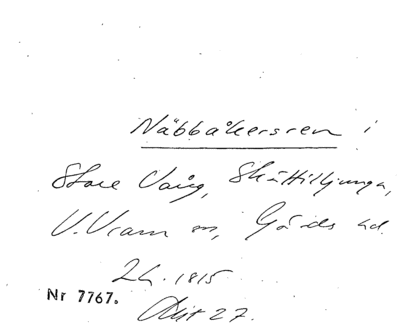 Näbbåkersren i
Store Vång, Skättilljunga,
V. Vram sn, Gärds hd.
Lh. 1815
Nr 7767.
Akt 27.